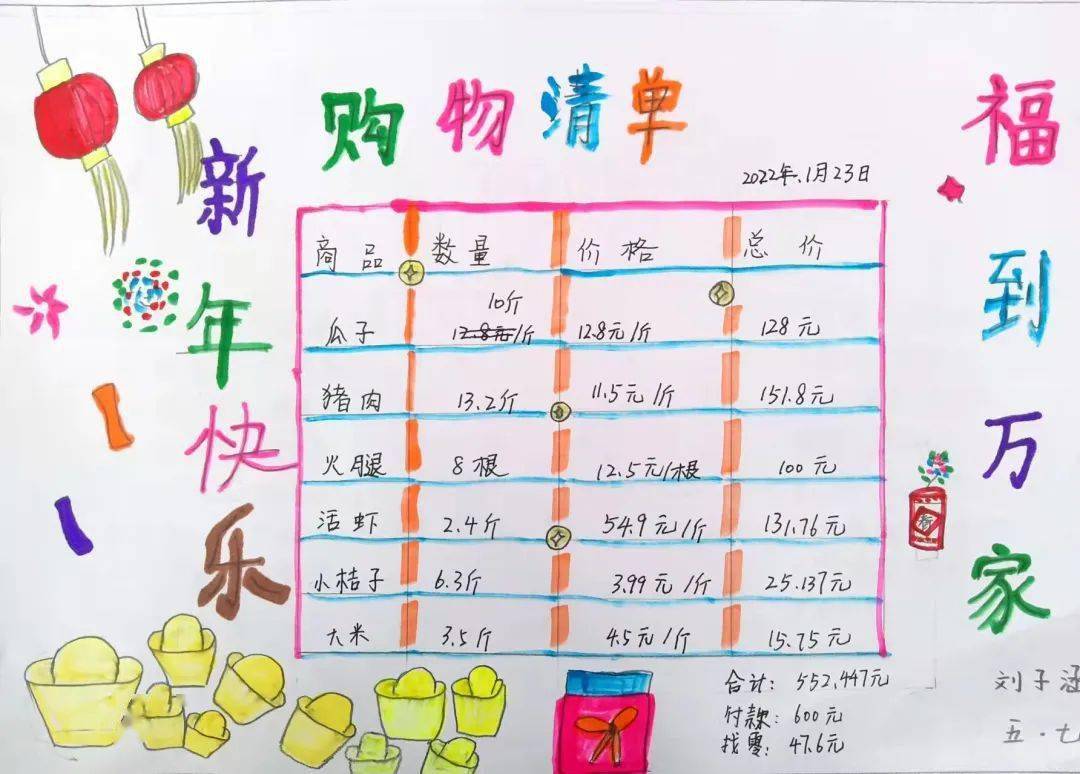 购物清单
新年快乐
福到万家
2022年.1月23日
商品 数量 价格 总价
10斤
瓜子 12.8元/斤 12.8元/斤 128元
猪肉 13.2斤 11.5元/斤 151.8元
火腿 8根 12.5元/根 100元
活虾 2.4斤 54.9元/斤 131.76元
小桔子 6.3斤 3.99元/斤 25.137元
大米 3.5斤 4.5元/斤 15.75元
合计: 552.447元
付款: 600元
找零: 47.6元
刘子涵
五.七